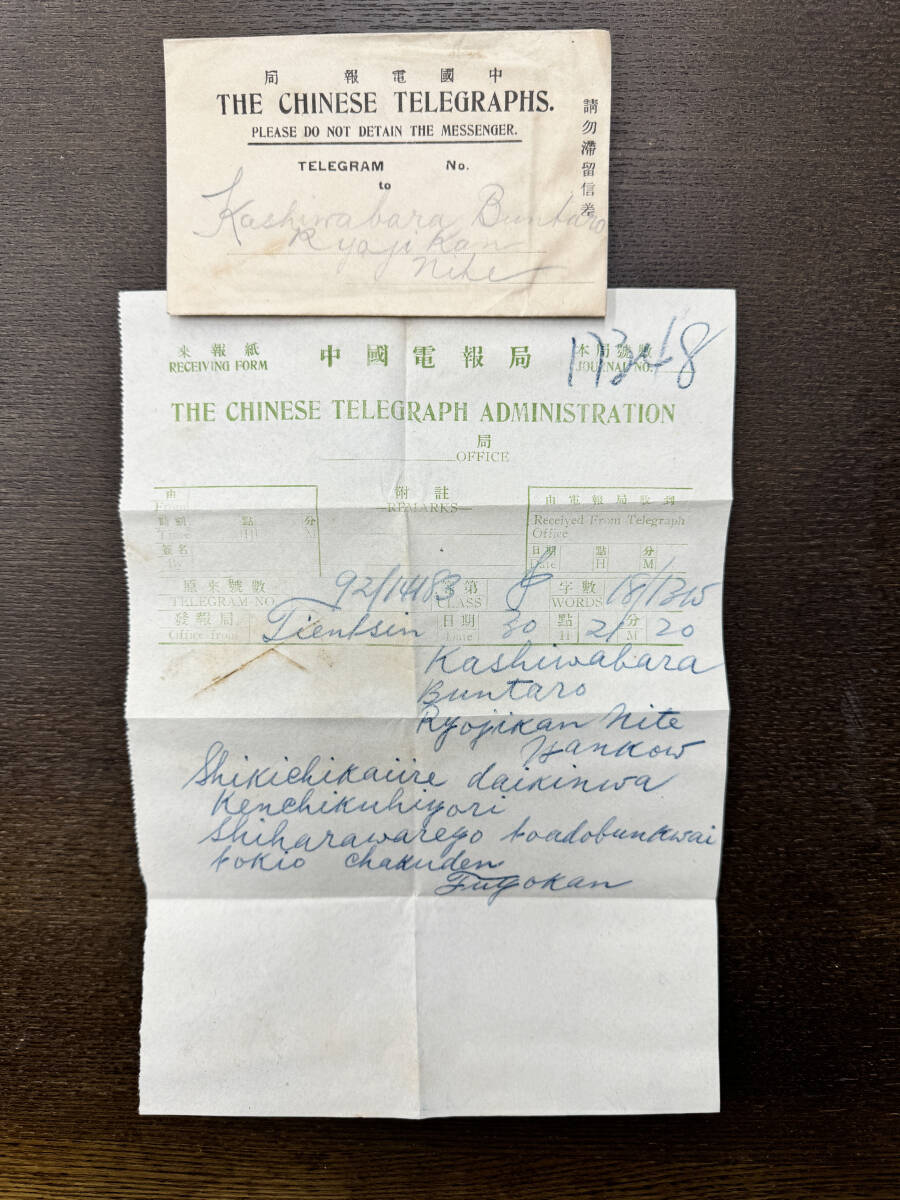 中國電報局
THE CHINESE TELEGRAPHS.
PLEASE DO NOT DETAIN THE MESSENGER.
請勿滯留信差
TELEGRAM No.
to
Kashiwabara Buntaro
Ryojikan
Nite
來報紙 中國電報局 本局號數
RECEIVING FORM JOURNAL NO.
THE CHINESE TELEGRAPH ADMINISTRATION
局
OFFICE
由 附註 由電報局收到
From REMARKS Received From Telegraph
Office
時刻 點 分
Time H M
簽名 日期 點 分
By Date H M
原來號數 等第 字數
TELEGRAM NO. 92/14483 CLASS WORDS 18/1315
發報局 日期 點 分
Office from Tientsin Date 30 H 21 M 20
Kashiwabara
Buntaro
Ryojikan Nite
Hankow
Shikichikaiire daikinwa
Kenchikuhiyori
Shiharawarego toadobunkwai
tokio chakuden
Fugokan